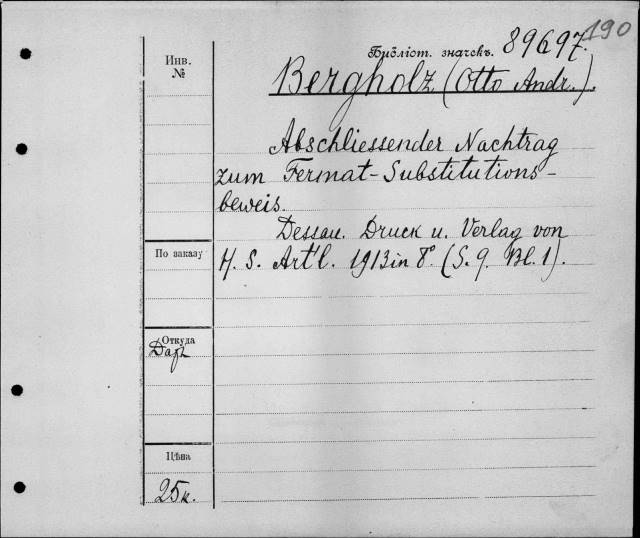 190
Библіот. значекъ. 89697.
Инв.
№
Bergholz (Otto Andr.).
Abschliessender Nachtrag
zum Fermat-Substitutions-
beweis.
Dessau. Druck u. Verlag von
H. S. Art'l. 1913 in 8° (S. 9. Bl. 1).
По заказу
Откуда
Даръ
Цѣна
25к.